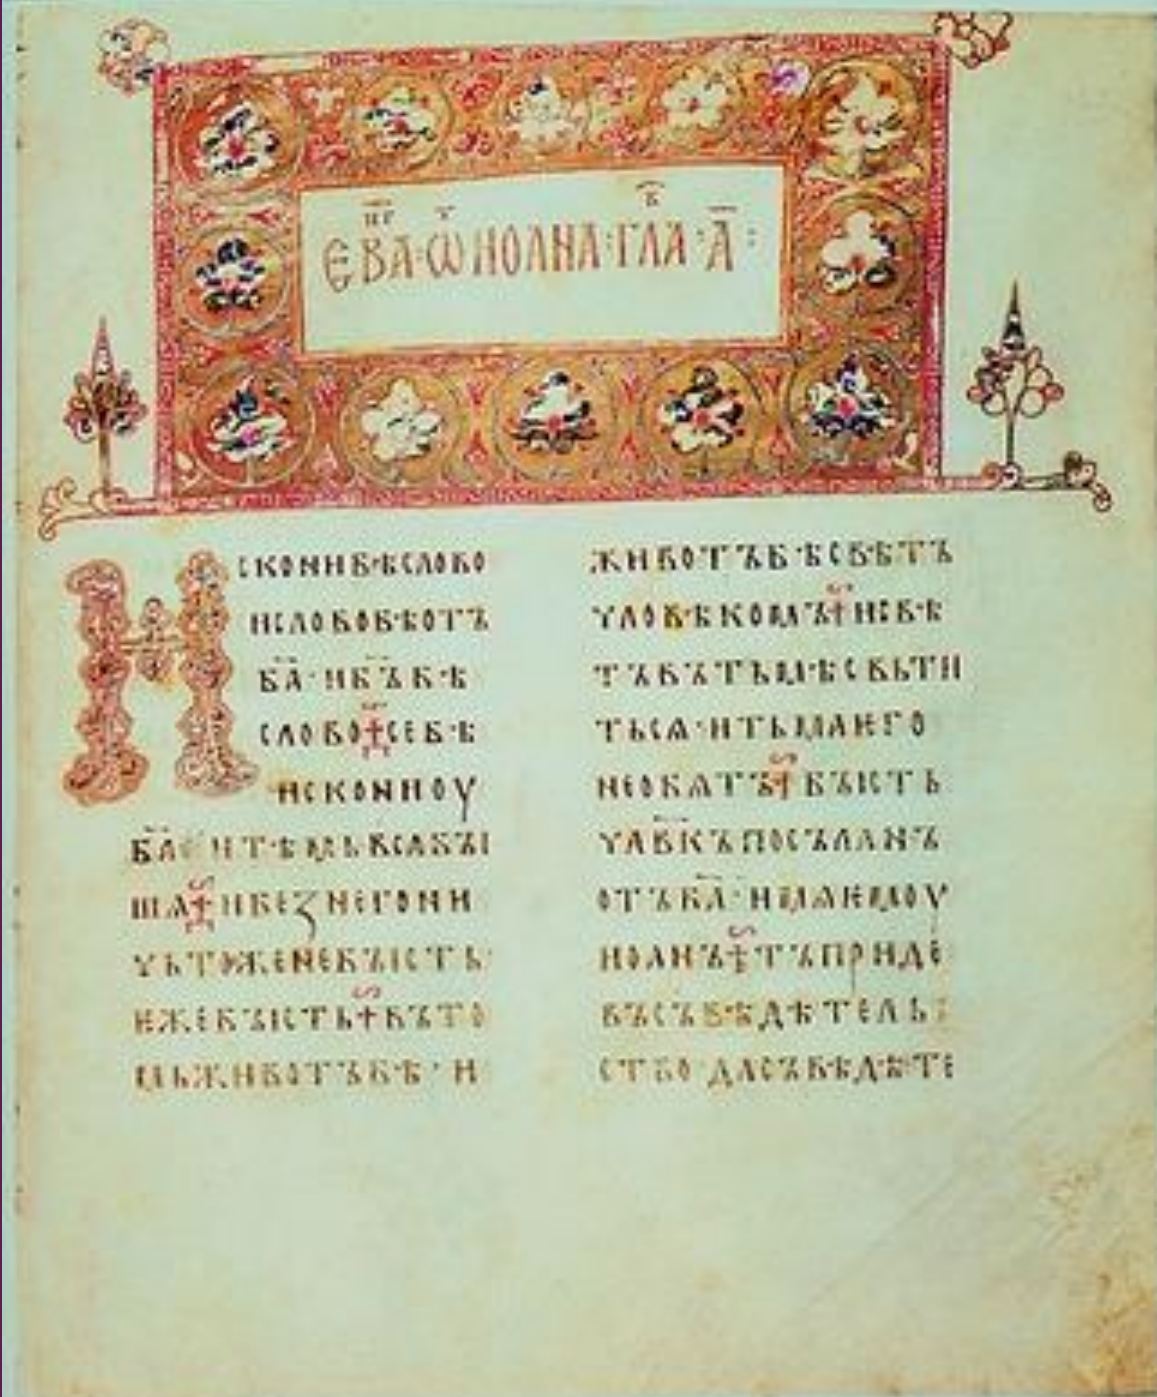 ЕВА·Ѿ ИОАНА·ГЛА·А҃:
Искони бѣ слово
и слово бѣ отъ
ба҃· и бъ҃ бѣ
слово се бѣ
искони оу
ба҃ и тѣмь вся бы
шѧ и без него ни
чьтоже не бысть·
еже бысть въ то
мь животъ бѣ· и
животъ бѣ свѣтъ
человѣкомъ и свѣ
тъ въ тьмѣ свьти
ться· и тьма ѥго
не обѧтъ бысть
чл҃вкъ посъланъ
отъ ба҃· имѧ ѥмоу
иоанъ тъ приде
въ съвѣдѣтель
ство· да съвѣдѣте